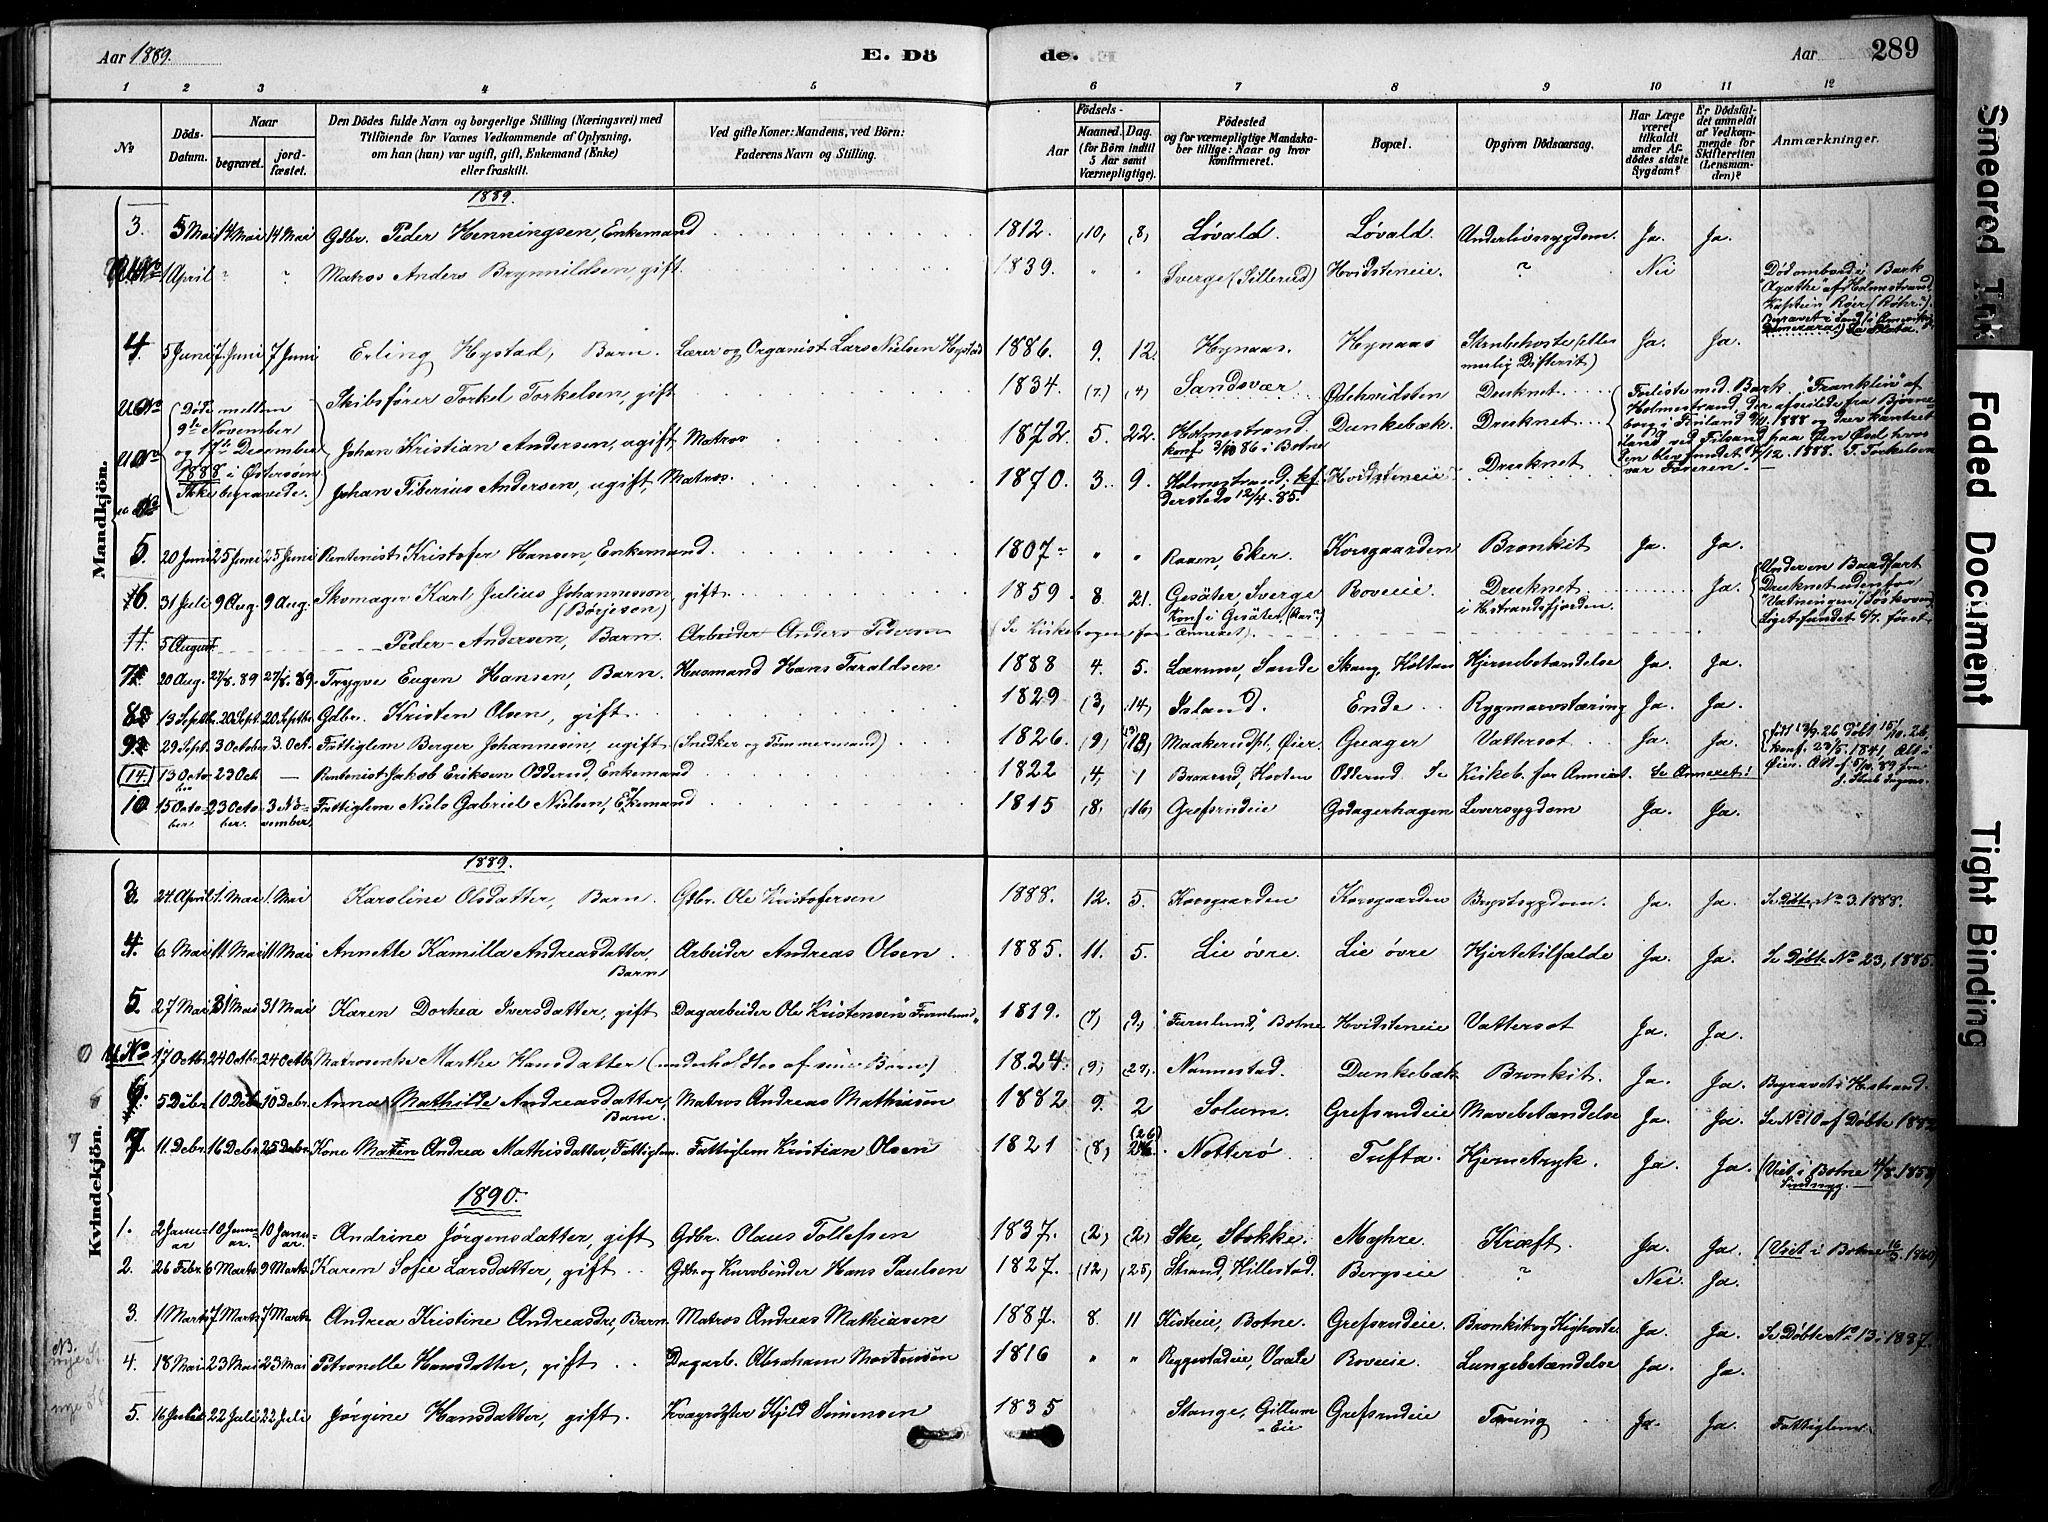 Aar 1889.
E. Dö de.
Aar 289
1 2 3 4 5 6 7 8 9 10 11 12
No
Döds-Datum.
Naar
begravet.
jord-fæstet.
Den Dödes fulde Navn og borgerlige Stilling (Næringsvei) med
Tilföiende for Voxnes Vedkommende af Oplysning,
om han (hun) var ugift, gift, Enkemand (Enke)
eller fraskilt.
Ved gifte Koner: Mandens, ved Börn:
Faderens Navn og Stilling.
Födsels-
Aar
Maaned. Dag.
(for Börn indtil
5 Aar samt
Værnepligtige).
Födested
og for værnepligtige Mandska-
ber tillige: Naar og hvor
konfirmeret.
Bopæl.
Opgiven Dödsaarsag.
Har Læge
været
tilkaldt
under Af-
dödes sidste
Sygdom?
Er Dödsfal-
det anmeldt
af Vedkom-
mende for
Skifteretten
(Lensman-
den)?
Anmærkninger.
Mandkjön.
1889.
3. 5 Mai 14 Mai 14 Mai Gdbr. Peder Henningsen, Enkemand 1812. (10) (8) Løvald. Løvald. Underlivssygdom. Ja. Ja.
April " " Matros Anders Brynnildsen, gift 1839. " " Sverge (Sillerud) Hvidsteneie. ? Nei
Død ombord i Bark
"Agathe" af Holmestrand,
Kaptein Røer (Røhr?).
4. 5 Juni 7 Juni 7 Juni Erling Hystad, Barn. Lærer og Organist Lars Nielsen Hystad 1886. 9. 12. Hynaas. Hynaas Strubehoste (eller
mulig Difterit) Ja. Ja.
Døde mellem
9de November
og 17de December
1888 i Østersøen
Ikke begravede.
Skibsfører Torkel Torkelsen, gift 1834 (7) (4) Sandsvær Ødehvidsten Druknet.
Johan Kristian Andersen, ugift, Matros 1872. 5. 22. Holmestrand.
konf 3/10 86 i Botne Dunkebæk. Druknet
Johan Tiberius Andersen, ugift, Matros. 1870. 3. 9. Holmestrand, kf.
dersteds 12/4. 85. Hvidsteneie Druknet
Forliste med Bark. "Franklin" af
Holmestrand, der afseilede fra Bjørne-
borg i Finland 9/11. 1888 og dens kantret
ved Filsand paa Øen Øsel, hvor
den blev fundet 17/12. 1888. T. Torkelsen
var Føreren. —
5. 20 Juni 25 Juni 25 Juni Rentenist Kristofer Hansen, Enkemand. 1807 " " Raaen, Eker. Korsgaarden Bronkit Ja. Ja.
6. 31 Juli 9 Aug. 9 Aug. Skomager Karl Julius Johannesson, gift
(Börjesen) 1859 8. 21. Gesäter, Sverge
Konf i Gesäter Roveie. Druknet
i H.strandsfjorden. Ja.
Under en Baadfart
Druknet udenfor
Liget fundet 6/7. først
11. 5 August Peder Andersen, Barn. Arbeider Anders Pedersen (Se Kirkebogen for
Annexet).
7. 20 Aug. 27/8. 89 27/8. 89. Trygve Eugen Hansen, Barn. Husmand Hans Taraldsen 1888 4. 5. Lærum, Sande Skaug, Holtan Hjernebetændelse Ja. Ja.
8. 13 Septbr 20 Sept. 20 Septbr Gdbr. Kristen Olsen, gift 1829 (3) (14) Island. Ende Rygmarvstæring Ja. Ja.
9. 29 Sept. 3 October 3. Oct. Fattiglem Berger Johannesen, ugift (Snedker og Tømmermand) 1826. (9) (13) Maakerudpl, Øier. Greager Vattersot Ja. Ja.
født 13/9. 26 Døbt 15/10. 26,
konf. 23/5. 1841. Alt i
Øier.
(14.) 13 October 23 Oct. — Rentenist Jakob Eriksen Odderud, Enkemand 1822 (4) 1 Braarud, Horten Odderud Se Kirkeb. for Annexet. Se Annexet!
10 15 October 23 October. 3 November Fattiglem Niels Gabriel Nielsen, Enkemand 1815 (8) (16) Grefsrudeie Godagerhagen Leversygdom Ja. Ja.
Kvindekjön.
1889.
3. 24. April 1. Mai 1. Mai Karoline Olsdatter, Barn. Gdbr. Ole Kristofersen 1888. 12. 5. Korsgaarden Korsgaarden Brystsygdom. Ja. Ja. Se Døbte, No 3. 1888.
4. 6. Mai 11. Mai 11 Mai Annette Kamilla Andreasdatter,
Barn Arbeider Andreas Olsen 1885. 11. 5. Lie øvre. Lie øvre Hjertetilfælde Ja. Ja. Se Døbte No 23, 1885.
5. 27 Mai 31 Mai 31 Mai Karen Dorkea Iversdatter, gift Dagarbeider Ole Kristensen "Furulund" 1819. (7) (9) "Furulund", Botne Hvidsteneie Vattersot Ja. Ja.
No 17 Octbr 24 Octbr 24 Octb. Matrosenke Marthe Hansdatter (underholdtes af sine Børn) 1824. (9) (27) Nannestad. Dunkebæk Bronkit. Ja. Ja. Begravet i H.strand.
6. 5 Debr. 10 Debr. 10 Debr. Anna Mathilde Andreasdatter,
Barn. Matros Andreas Mathiasen 1882 9. 2 Solum. Grefsrudeie Mavebetændelse Ja. Ja. Se No 10 af Døbte 1882
7. 11. Debr. 16 Debr. 25 Debr. Kone Maren Andrea Mathisdatter, Fattiglem. Fattiglem Kristian Olsen 1821 (8) (26) Nøtterø Tufta. Hjernetryk. Ja. Ja. (Viet i Botne 4/8. 1859)
1890.
1. 2 Januar 10 Januar. 10 Januar. Andrine Jørgensdatter, gift Gdbr. Olaus Tollefsen 1837. (2) (2) Ske, Stokke. Mæhre. Kræft. Ja. Ja. (Viet i Botne 1860)
2. 26 Febr. 6 Marts 9 Marts Karen Sofie Larsdatter, gift Gdbr. og Kurvbinder Hans Paulsen 1827. (12) (25) Strand, Hillestad. Bergseie ? Nei. Ja.
3. 1 Marts 7 Marts 7 Marts. Andrea Kristine Andreasdtr, Barn. Matros Andreas Mathiasen 1887. 8. 11 Kisteie, Botne. Grefsrudeie. Bronkit og Kighoste. Ja. Ja. Se Døbte No 13. 1887.
4. 18 Mai 23 Mai 23 Mai Petronelle Hansdatter, gift Dagarb. Abraham Mortensen 1816 " " Reggestadeie, Vaale Roveie. Lungebetændelse Ja. Ja.
5. 16 Juli 22 Juli 22 Juli Jørgine Hansdatter, gift. Kvægrøgter Kjeld Sørensen 1835 Stange, Gillum
Eie Grefsrudeie Tæring Ja. Ja. Fattiglem.
Smeared Ink
Faded Document
Tight Binding